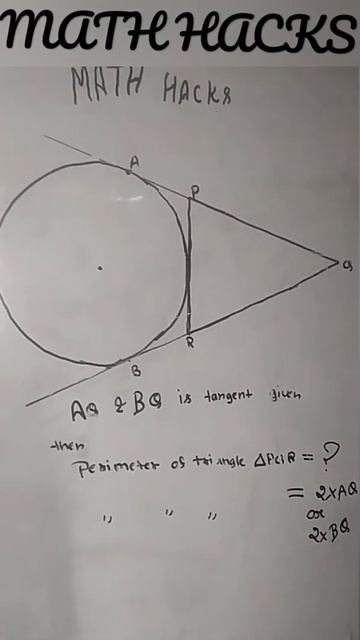 MATH HACKS
MATH HACKS
A
P
Q
R
B
AQ & BQ is tangent given
then
Perimeter of triangle ΔPQR = ?
= 2×AQ
or
" " " 2×BQ